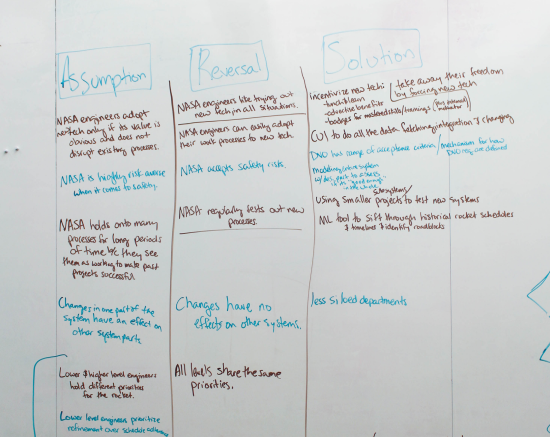 Assumption
NASA engineers adopt
new tech only if its value is
obvious and does not
disrupt existing processes.
NASA is highly risk averse
when it comes to safety.
NASA holds onto many
processes for long periods
of time b/c they see
them as working to make past
projects successful.
Changes in one part of the
system have an effect on
other system parts
Lower & higher level engineers
hold different priorities
for the rocket.
Lower level engineers prioritize
refinement over schedule adherence
Reversal
NASA engineers like trying out
new tech in all situations.
NASA engineers can easily adapt
their work processes to new tech.
NASA accepts safety risks.
NASA regularly tests out new
processes.
Changes have no
effects on other systems.
All levels share the same
priorities.
Solution
incentivize new tech:
- touchscreen
- education benefits
- badges for
take away their freedom
by forcing new tech
to do all the data integration & changing
has range of acceptance criteria / mechanism for how
are defined
subsystems/
using smaller projects to test new systems
ML tool to sift through historical rocket schedules
& timelines & identify roadblocks
less siloed departments